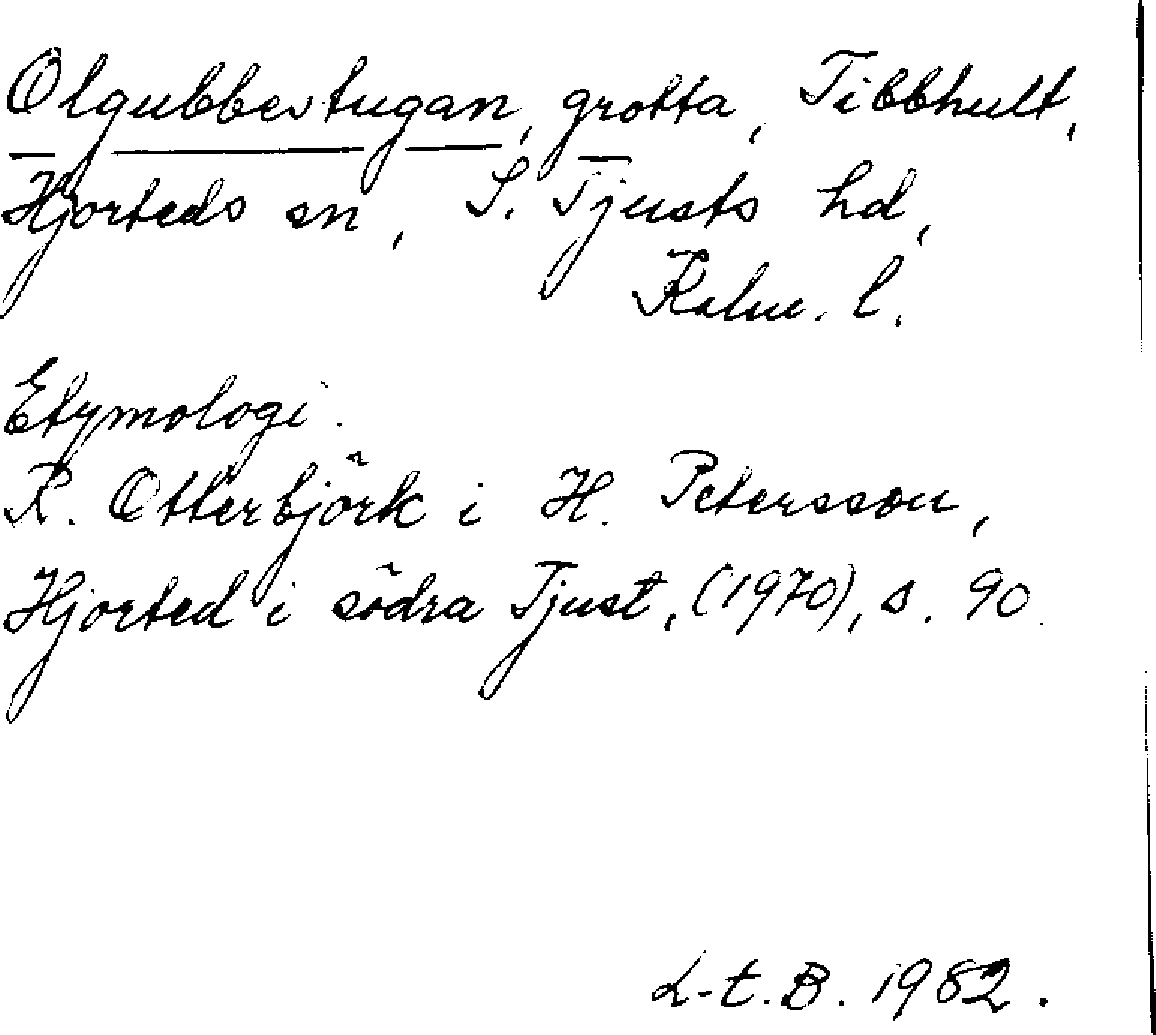 Olgubbestugan, grotta, Tibbhult,
Hjorteds sn, S. Tjusts hd,
Kalm. l.
Etymologi.
R. Otterbjörk i H. Petersson,
Hjorted i södra Tjust, (1970), s. 90.
L-t.B. 1982.